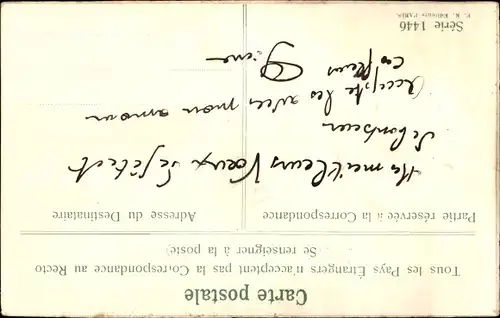 Carte postale
Tous les Pays Étrangers n'acceptent pas la Correspondance au Recto
(Se renseigner à la poste)
Partie réservée à la Correspondance
Adresse du Destinataire
Meilleurs Vœux
de bonheur
Accepte les avec mon amour
Série 1446
Editeurs PARIS